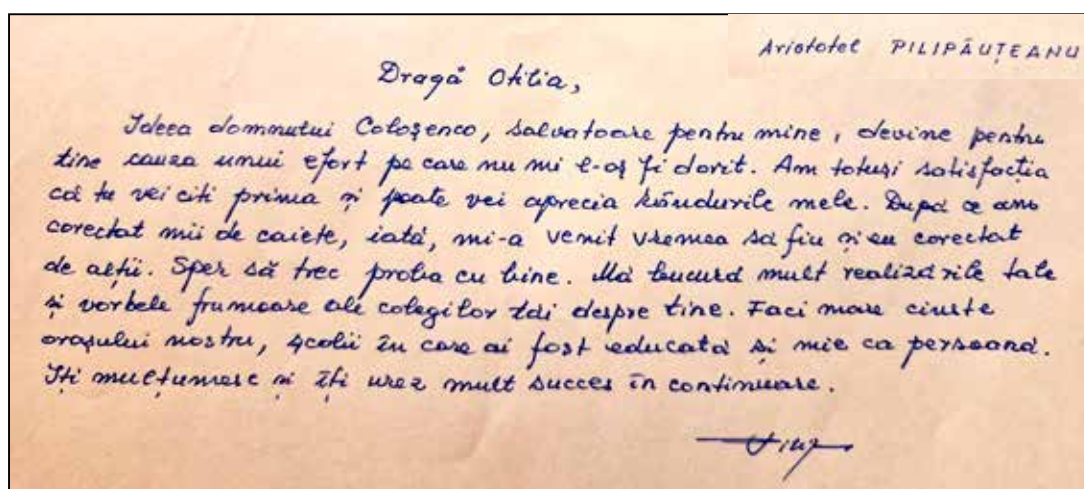 Aristotel PILIPĂUȚEANU
Dragă Otilia,
Ideea domnului Coloșenco, salvatoare pentru mine, devine pentru
tine cauza unui efort pe care nu mi l-aș fi dorit. Am totuși satisfacția
că tu vei citi prima și poate vei aprecia rândurile mele. După ce am
corectat mii de caiete, iată, mi-a venit vremea să fiu și eu corectat
de alții. Sper să trec proba cu bine. Mă bucură mult realizările tale
și vorbele frumoase ale colegilor tăi despre tine. Faci mare cinste
orașului nostru, școlii în care ai fost educată și mie ca persoană.
Îți mulțumesc și îți urez mult succes în continuare.